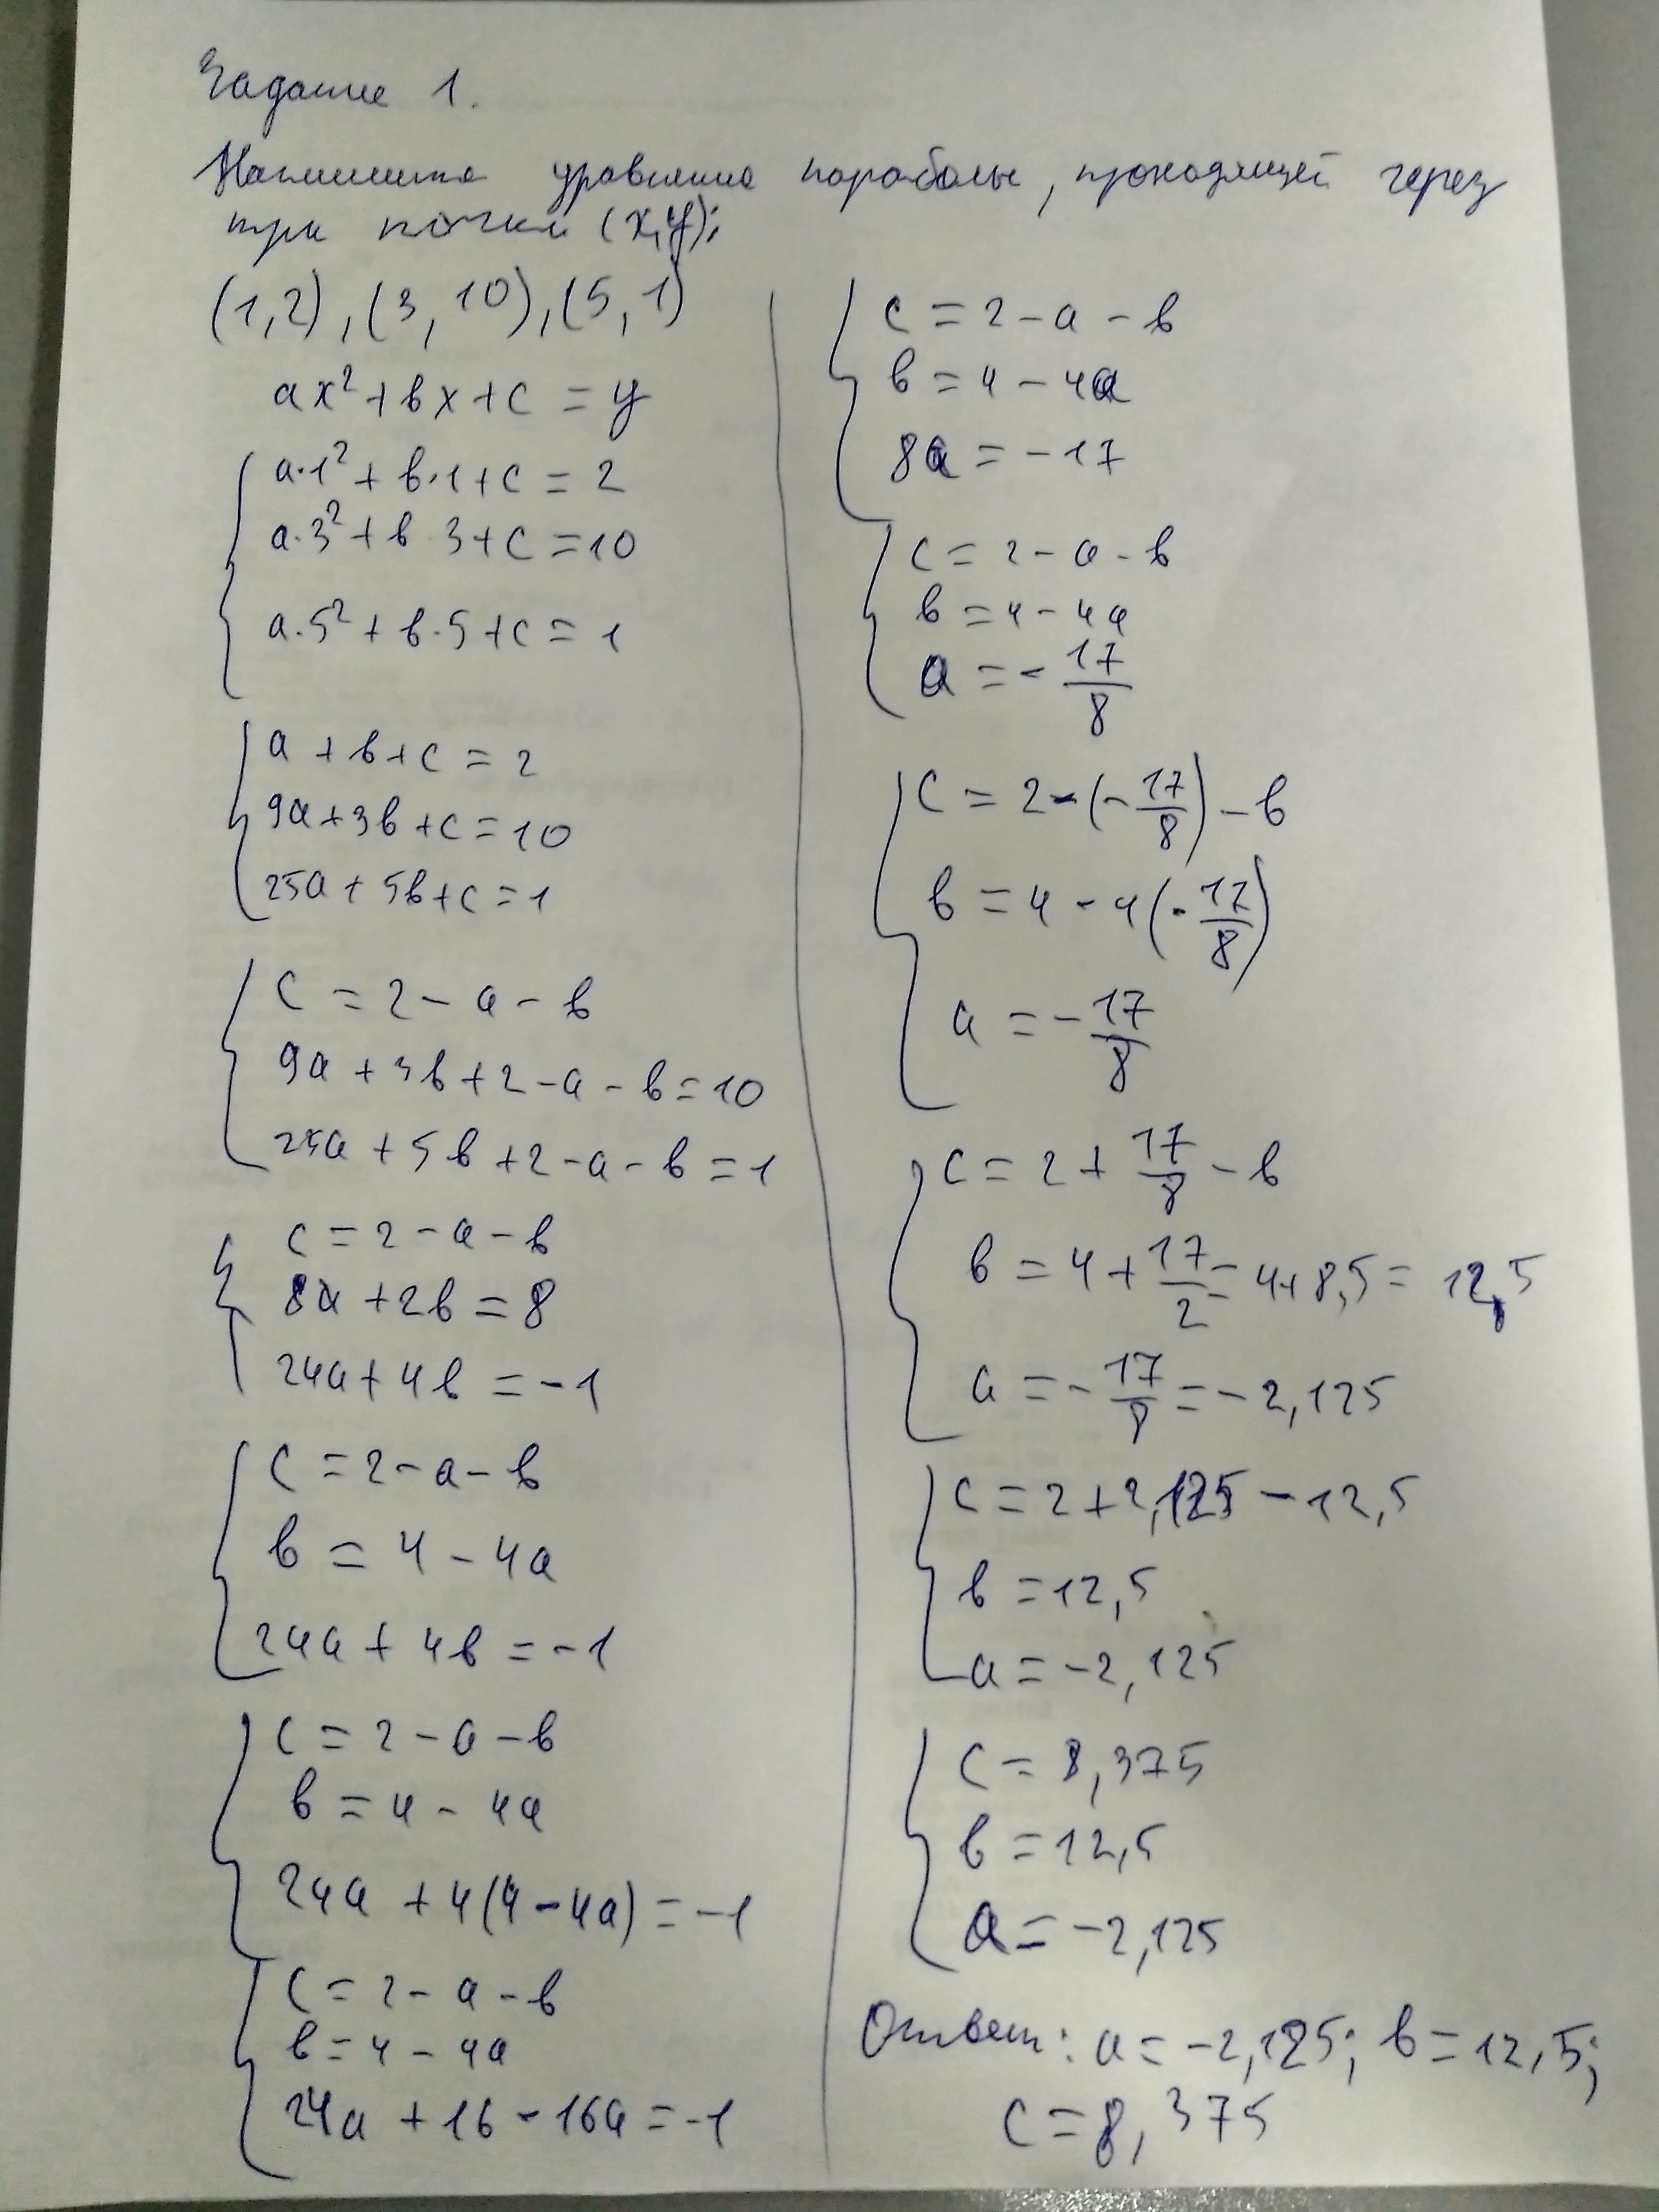 Задание 1.
Напишите уравнение параболы, проходящей через
три точки (x,y):
(1,2), (3, 10), (5, 1)
ax² + bx + c = y
a·1² + b·1 + c = 2
a·3² + b 3 + c = 10
a·5² + b·5 + c = 1
a + b + c = 2
9a + 3b + c = 10
25a + 5b + c = 1
c = 2 - a - b
9a + 3b + 2 - a - b = 10
25a + 5b + 2 - a - b = 1
c = 2 - a - b
8a + 2b = 8
24a + 4b = -1
c = 2 - a - b
b = 4 - 4a
24a + 4b = -1
c = 2 - a - b
b = 4 - 4a
24a + 4(4 - 4a) = -1
c = 2 - a - b
b = 4 - 4a
24a + 16 - 16a = -1
c = 2 - a - b
b = 4 - 4a
8a = -17
c = 2 - a - b
b = 4 - 4a
a = - 17/8
c = 2 - (- 17/8) - b
b = 4 - 4(- 17/8)
a = - 17/8
c = 2 + 17/8 - b
b = 4 + 17/2 = 4 + 8,5 = 12,5
a = - 17/8 = - 2,125
c = 2 + 2,125 - 12,5
b = 12,5
a = -2,125
c = 8,375
b = 12,5
a = -2,125
Ответ: a = -2,125; b = 12,5;
c = 8,375